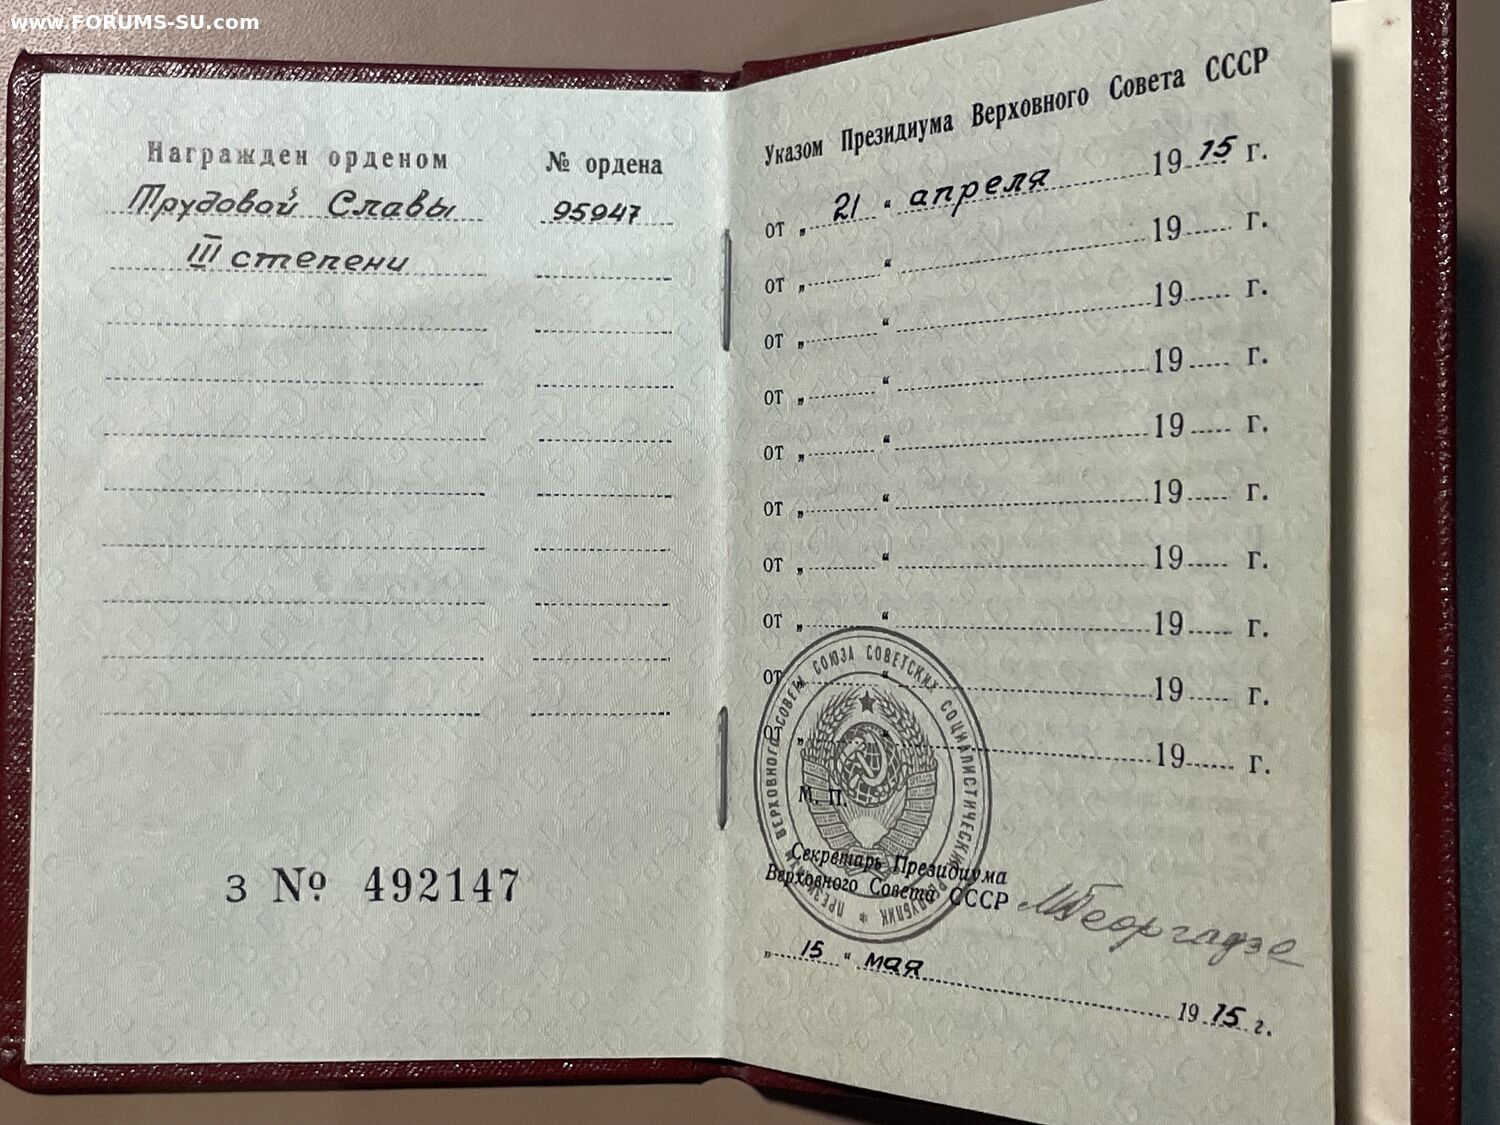 www.FORUMS-SU.com
Награжден орденом № ордена
Трудовой Славы 95947
III степени
З № 492147
Указом Президиума Верховного Совета СССР
от „ 21 “ апреля 1975 г.
от „ “ 19 г.
от „ “ 19 г.
от „ “ 19 г.
от „ “ 19 г.
от „ “ 19 г.
от „ “ 19 г.
от „ “ 19 г.
от „ “ 19 г.
от „ “ 19 г.
ПРЕЗИДИУМ ВЕРХОВНОГО СОВЕТА СОЮЗА СОВЕТСКИХ СОЦИАЛИСТИЧЕСКИХ РЕСПУБЛИК *
М. П.
Секретарь Президиума
Верховного Совета СССР МГеоргадзе
„ 15 “ мая 1975 г.